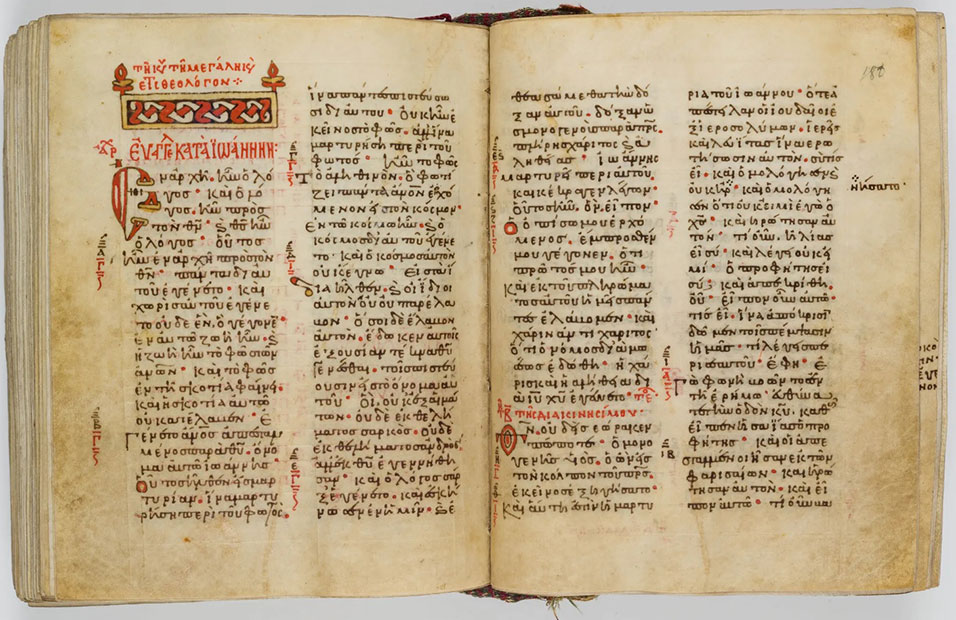 ἐυαγγε κατὰ ϊωάννην:
Ἐν ἀρχῆ ἦν ὁ λό
γος. καὶ ὁ λό
γος. ἦν πρὸς
τὸν θν. καὶ θς ἦν
ὁ λόγος. οὗτος
ἦν ἐν ἀρχῆ πρὸς τὸν
θν. πάντα δι ἀυ
τοῦ ἐγένετο. καὶ
χωρὶς ἀυτοῦ ἐγένε
το ουδὲ ἕν. ὃ γέγονεν
ἐν ἀυτῶ ζωὴ ἦν. καὶ
ἡ ζωὴ ἦν τὸ φῶς τῶν
ἀνων. καὶ τὸ φῶς
ἐν τῆ σκοτία φαίνει.
καὶ ἡ σκοτία ἀυτὸ
οὐ κατέλαβεν. ἐ
γένετο ἄνος ἀπεσταλ
μένος παρὰ θυ. ὄνο
μα ἀυτῶ ϊωάννης
οὗτος ἦλθεν εἰς μαρ
τυρίαν. ἵνα μαρτυ
ρήση περὶ τοῦ φωτός.
ἵνα πάντες πιστεύσω
σι δι ἀυτοῦ. οὐκ ἦν ἐ
κεῖνος τὸ φῶς. ἀλλ ἵνα
μαρτυρήση περὶ τοῦ
φωτός. ἦν τὸ φῶς
τὸ ἀληθινόν. ὃ φωτί
ζει πάντα ἄνον ἐρχό
μενον εἰς τὸν κόσμον.
ἐν τῶ κόσμω ἦν. καὶ ὁ
κόσμος δι ἀυτοῦ ἐγένε
το. καὶ ὁ κόσμος ἀυτὸν
οὐκ ἔγνω. εἰς τὰ ἴ
δια ἦλθεν. καὶ οἱ ἴδιοι
ἀυτὸν οὐ παρέλα
βον. ὅσοι δὲ ἔλαβον
ἀυτόν. ἔδωκεν ἀυτοῖς
ἐξουσίαν τέκνα θυ
γενέσθαι. τοῖς πιστεύ
ουσιν εἰς τὸ ὄνομα ἀυ
τοῦ. οἳ οὐκ ἐξ αἱμά
των. οὐδὲ ἐκ θελή
ματος σαρκός. οὐδὲ
ἐκ θελήματος ἀνδρός.
ἀλλ ἐκ θυ ἐγεννήθη
σαν. καὶ ὁ λόγος σὰρ
ξ ἐγένετο. καὶ ἐσκή
νωσεν ἐν ἡμῖν. καὶ ἐ
θεασάμεθα τὴν δό
ξαν ἀυτοῦ. δόξαν ὡ
ς μονογενοῦς παρὰ πρς.
πλήρης χάριτος καὶ ἀ
ληθείας. ϊωάννης
μαρτυρεῖ περὶ ἀυτοῦ.
καὶ κέκραγεν λέγων.
οὗτος ἦν. ὃν εἶπον.
ὁ ὀπίσω μου ἐρχό
μενος. ἔμπροσθέν
μου γέγονεν. ὅτι
πρῶτός μου ἦν.
καὶ ἐκ τοῦ πληρώμα
τος ἀυτοῦ ἡμεῖς παν
τες ἐλάβομεν. καὶ
χάριν ἀντὶ χάριτος
ὅτι ὁ νόμος διὰ μω
σέως ἐδόθη. ἡ χά
ρις καὶ ἡ ἀλήθεια δι
ὰ ιυ χυ ἐγένετο.
τῆς διακινησίμου
Θν. οὐδεὶς ἑώρακεν
πώποτε. ὁ μονο
γενὴς υἱός. ὁ ὢν εἰς
τὸν κόλπον τοῦ πρς.
ἐκεῖνος ἐξηγήσατο
καὶ ἀυτη ἐστὶν ἡ μαρτυ
180
ρία τοῦ ϊωάννου. ὅτε ἀ
πέστειλαν οἱ ιουδαῖοι ἐ
ξ ιεροσολύμων. ἱερεῖς
καὶ λευΐτας ἵνα ἐρω
τήσωσιν ἀυτόν. σὺ τίς
εἶ. καὶ ὡμολόγησεν καὶ
οὐκ ἠρ. καὶ ὡμολόγη
νήσατο
σεν ὅτι οὐκ εἰμὶ ἐγὼ ὁ
χς. καὶ ἠρώτησαν ἀυ
τόν. τί οὖν. ἡλίας
εἶ σύ. καὶ λέγει οὐκ εἰ
μί. ὁ προφήτης εἶ
σύ. καὶ ἀπεκρίθη.
οὔ. εἶπον οὖν ἀυτῶ
τίς εἶ. ἵνα ἀπόκρισιν
δῶμεν τοῖς πέμψασιν
ἡμᾶς. τί λέγεις πε
ρὶ σεαυτοῦ. ἔφη. ἐ
γὼ φωνὴ βοῶντος ἐν
τῆ ἐρήμω. ἐυθύνα
τε τὴν ὁδὸν κυ. καθὼς
εἶπεν ἡσαΐας ὁ προ
φήτης. καὶ οἱ ἀπε
σταλμένοι ἦσαν ἐκ τῶν
φαρισαίων. καὶ ἠρώ
τησαν ἀυτόν. καὶ εἶ
πον ἀυτῶ. τί οὖν βα